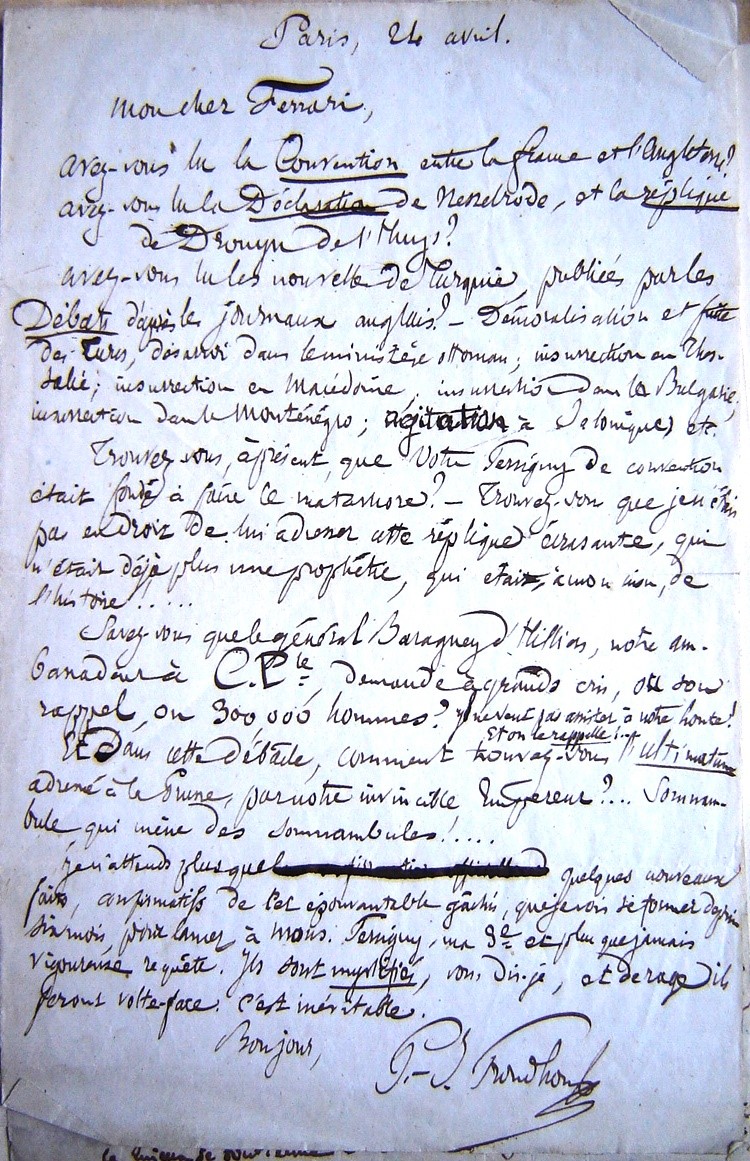 Paris, 24 avril.
Mon cher Ferrari,
avez-vous lu la Convention entre la france et l'Angleterre?
avez-vous lu la Déclaration de Nesselrode, et la réplique
de Drouyn de l'Huys?
avez-vous lu les nouvelles de Turquie, publiées par les
Débats d'après les journaux anglais? — Démoralisation et fuite
des Turcs, désarroi dans le ministère ottoman; insurrection en Thes-
salie; insurrection en Macédoine, insurrection dans la Bulgarie,
insurrection dans le Monténégro; agitation à Salonique, etc.
Trouvez-vous, à présent, que Votre Persigny de convention
était fondé à faire le matamore? — Trouvez-vous que je n'étais
pas en droit de lui adresser cette réplique écrasante, qui
n'était déjà plus une prophétie, qui était, à mon insu, de
l'histoire.....
Savez-vous que le général Baraguey d'Hilliers, notre am-
bassadeur à C.Ple, demande à grands cris, ou son
rappel, ou 300 000 hommes? Il ne veut pas assister à notre honte!
Et on le rappelle!..
Et Dans cette débâcle, comment trouvez-vous l'ultimatum
adressé à la Prusse, par notre invincible Empereur?... Somnam-
bule qui mène des somnambules!....
Je n'attends plus que quelques nouveaux
faits, confirmatifs de cet épouvantable gâchis, que je vois se former depuis
six mois, pour lancer à mons. Persigny, ma 3e et plus que jamais
vigoureuse requête. Ils sont mystifiés, vous dis-je, et de rage ils
feront volte-face. C'est inévitable.
Bonjour,
P.-J. Proudhon